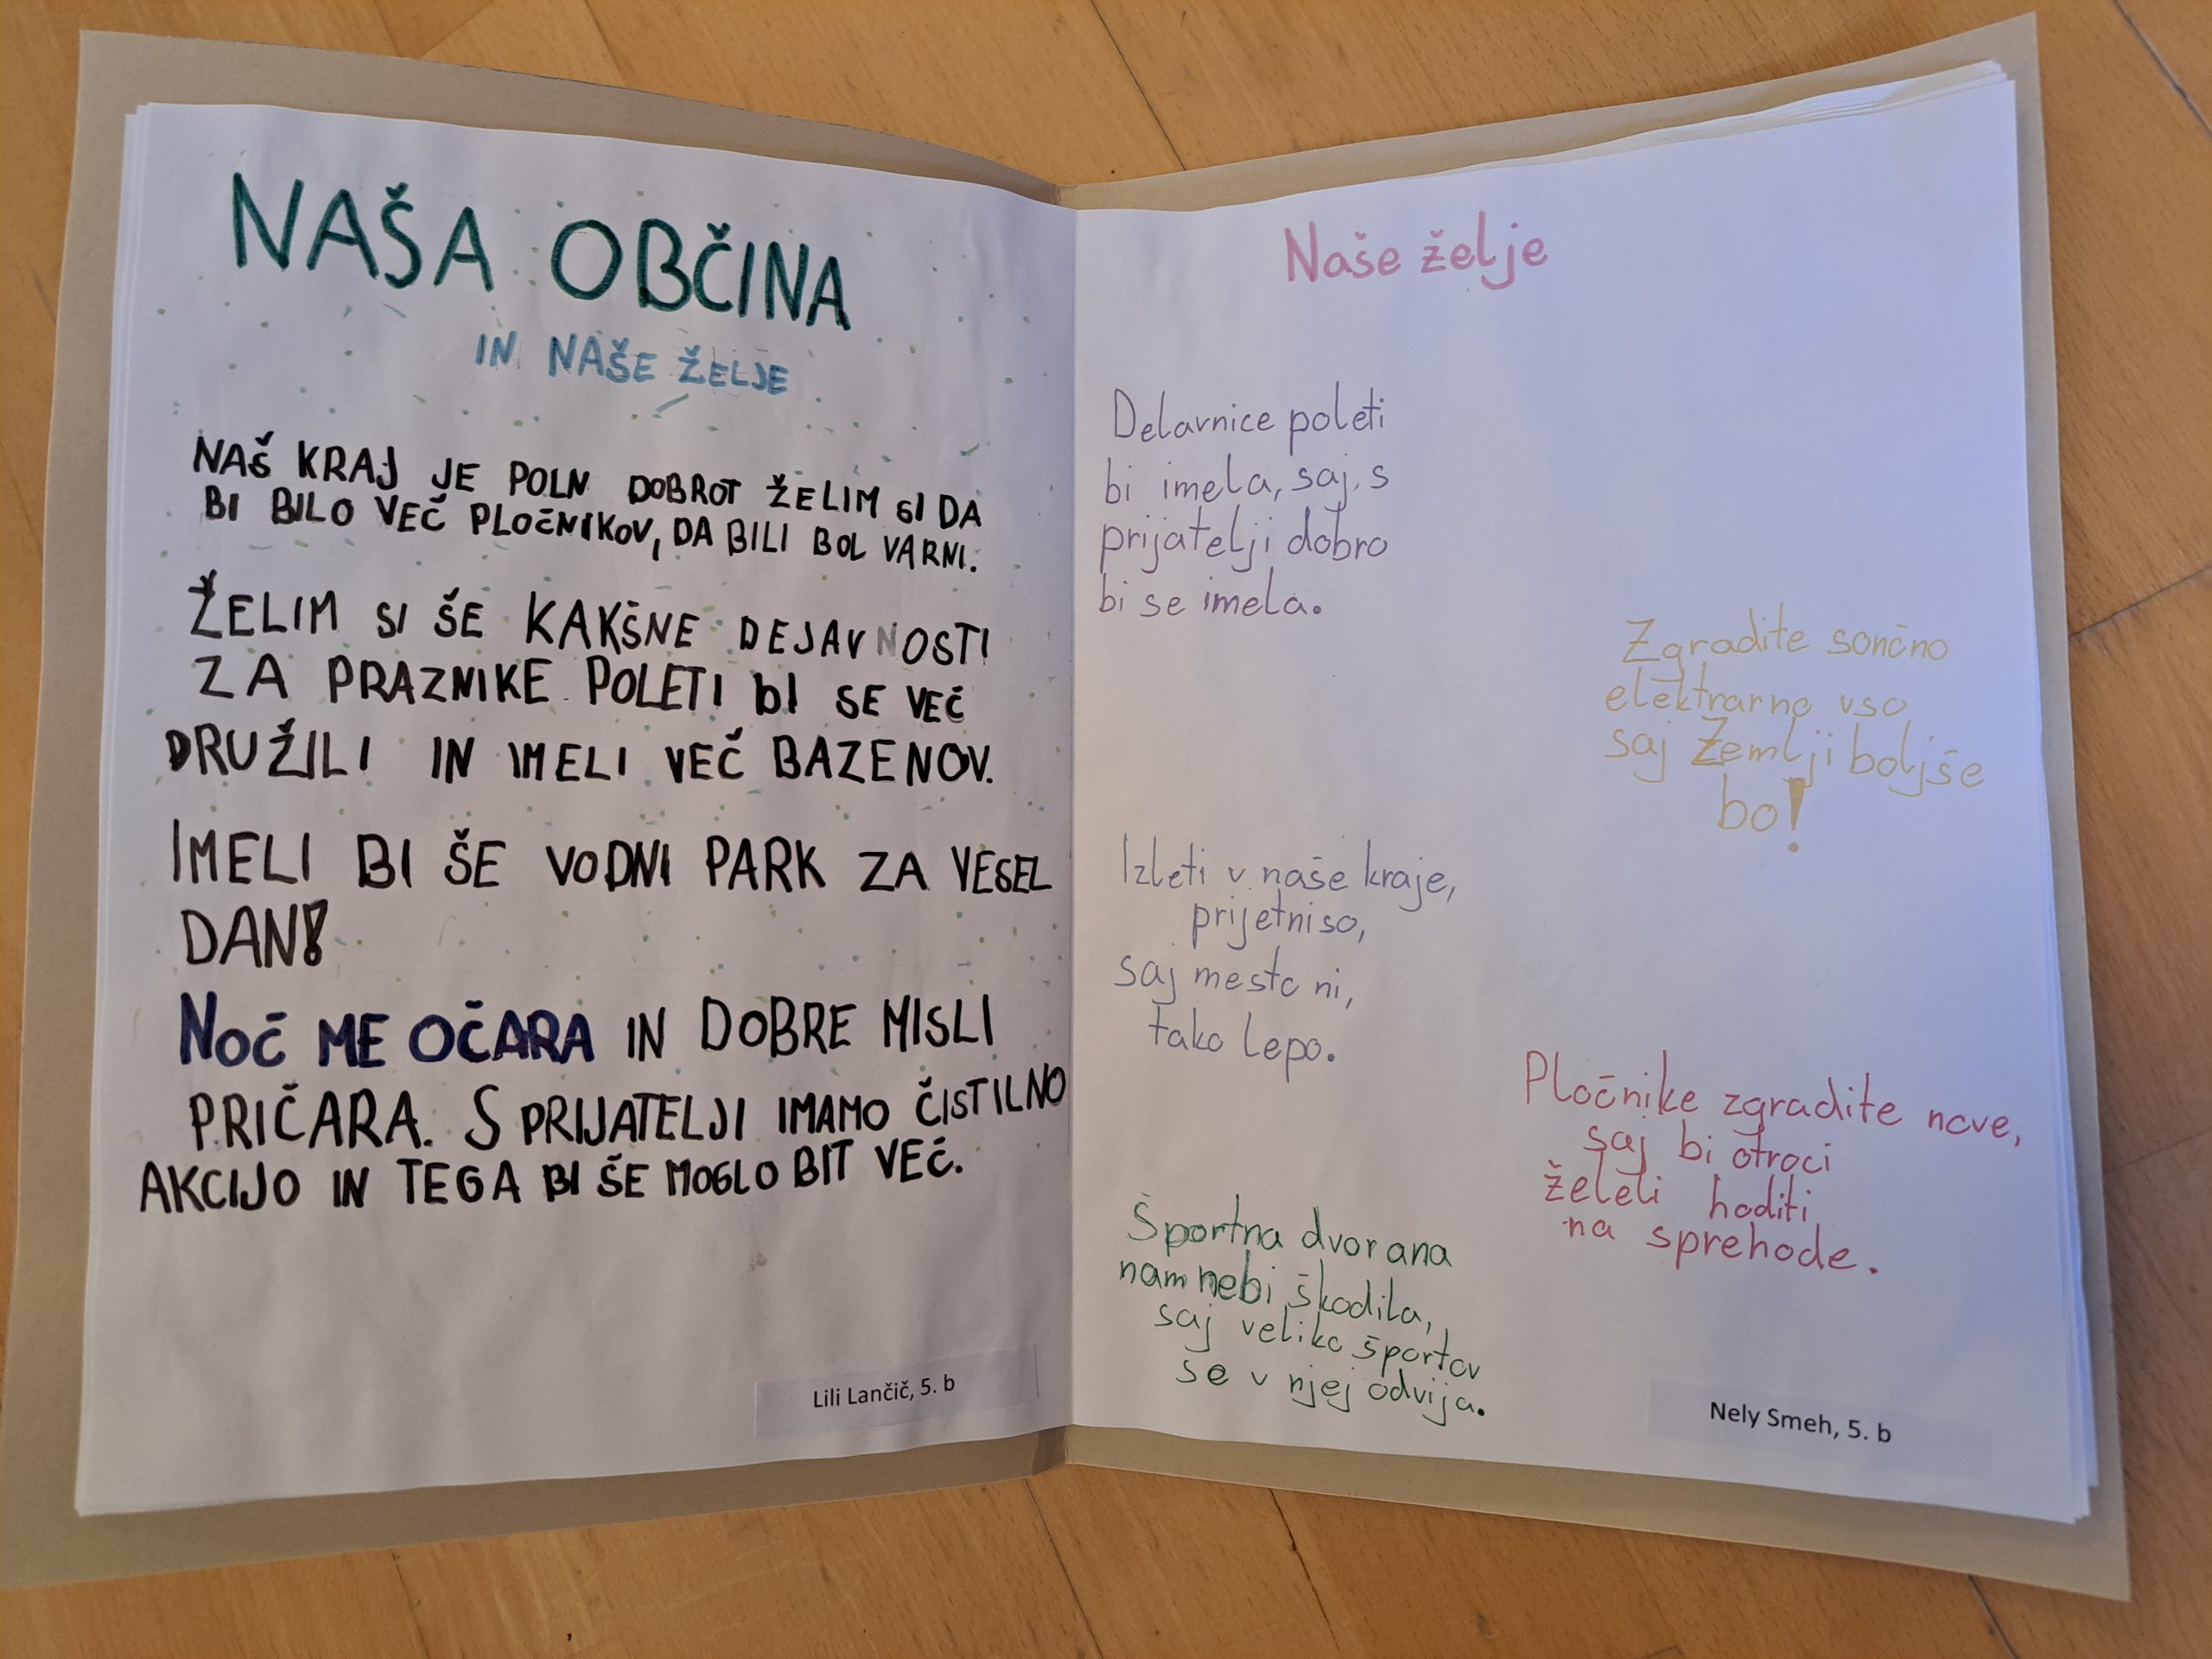 NAŠA OBČINA
IN NAŠE ŽELJE
NAŠ KRAJ JE POLN DOBROT ŽELIM SI DA
BI BILO VEČ PLOČNIKOV, DA BILI BOL VARNI.
ŽELIM SI ŠE KAKŠNE DEJAVNOSTI
ZA PRAZNIKE POLETI bI SE VEČ
DRUŽILI IN IMELI VEČ BAZENOV.
IMELI BI ŠE VODNI PARK ZA VESEL
DAN!
NOČ ME OČARA IN DOBRE MISLI
PRIČARA. S PRIJATELJI IMAMO ČISTILNO
AKCIJO IN TEGA BI ŠE MOGLO BIT VEČ.
Lili Lančič, 5. b
Naše želje
Delavnice poleti
bi imela, saj s
prijatelji dobro
bi se imela.
Zgradite sončno
elektrarno vso
saj Zemlji boljše
bo!
Izleti v naše kraje,
prijetni so,
saj mesto ni,
tako lepo.
Pločnike zgradite nove,
saj bi otroci
želeli hoditi
na sprehode.
Športna dvorana
nam nebi škodila,
saj veliko športov
se v njej odvija.
Nely Smeh, 5. b